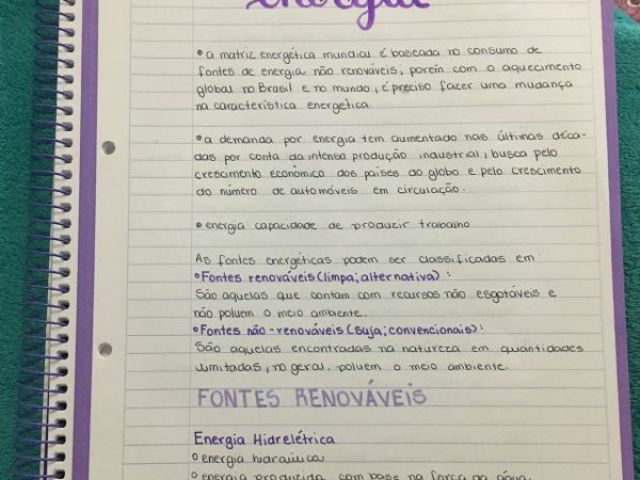 energia
• a matriz energética mundial é baseada no consumo de
fontes de energia não renováveis, porém com o aquecimento
global no Brasil e no mundo, é preciso fazer uma mudança
na característica energética.
• a demanda por energia tem aumentado nas últimas déca-
das por conta da intensa produção industrial, busca pelo
crescimento econômico dos países do globo e pelo crescimento
do número de automóveis em circulação.
• energia capacidade de produzir trabalho
As fontes energéticas podem ser classificadas em:
• Fontes renováveis (limpa; alternativa):
São aquelas que contam com recursos não esgotáveis e
não poluem o meio ambiente.
• Fontes não-renováveis (suja; convencionais):
São aquelas encontradas na natureza em quantidades
limitadas, no geral, poluem o meio ambiente.
FONTES RENOVÁVEIS
Energia Hidrelétrica
• energia hidráulica
• energia produzida com base na força da água.